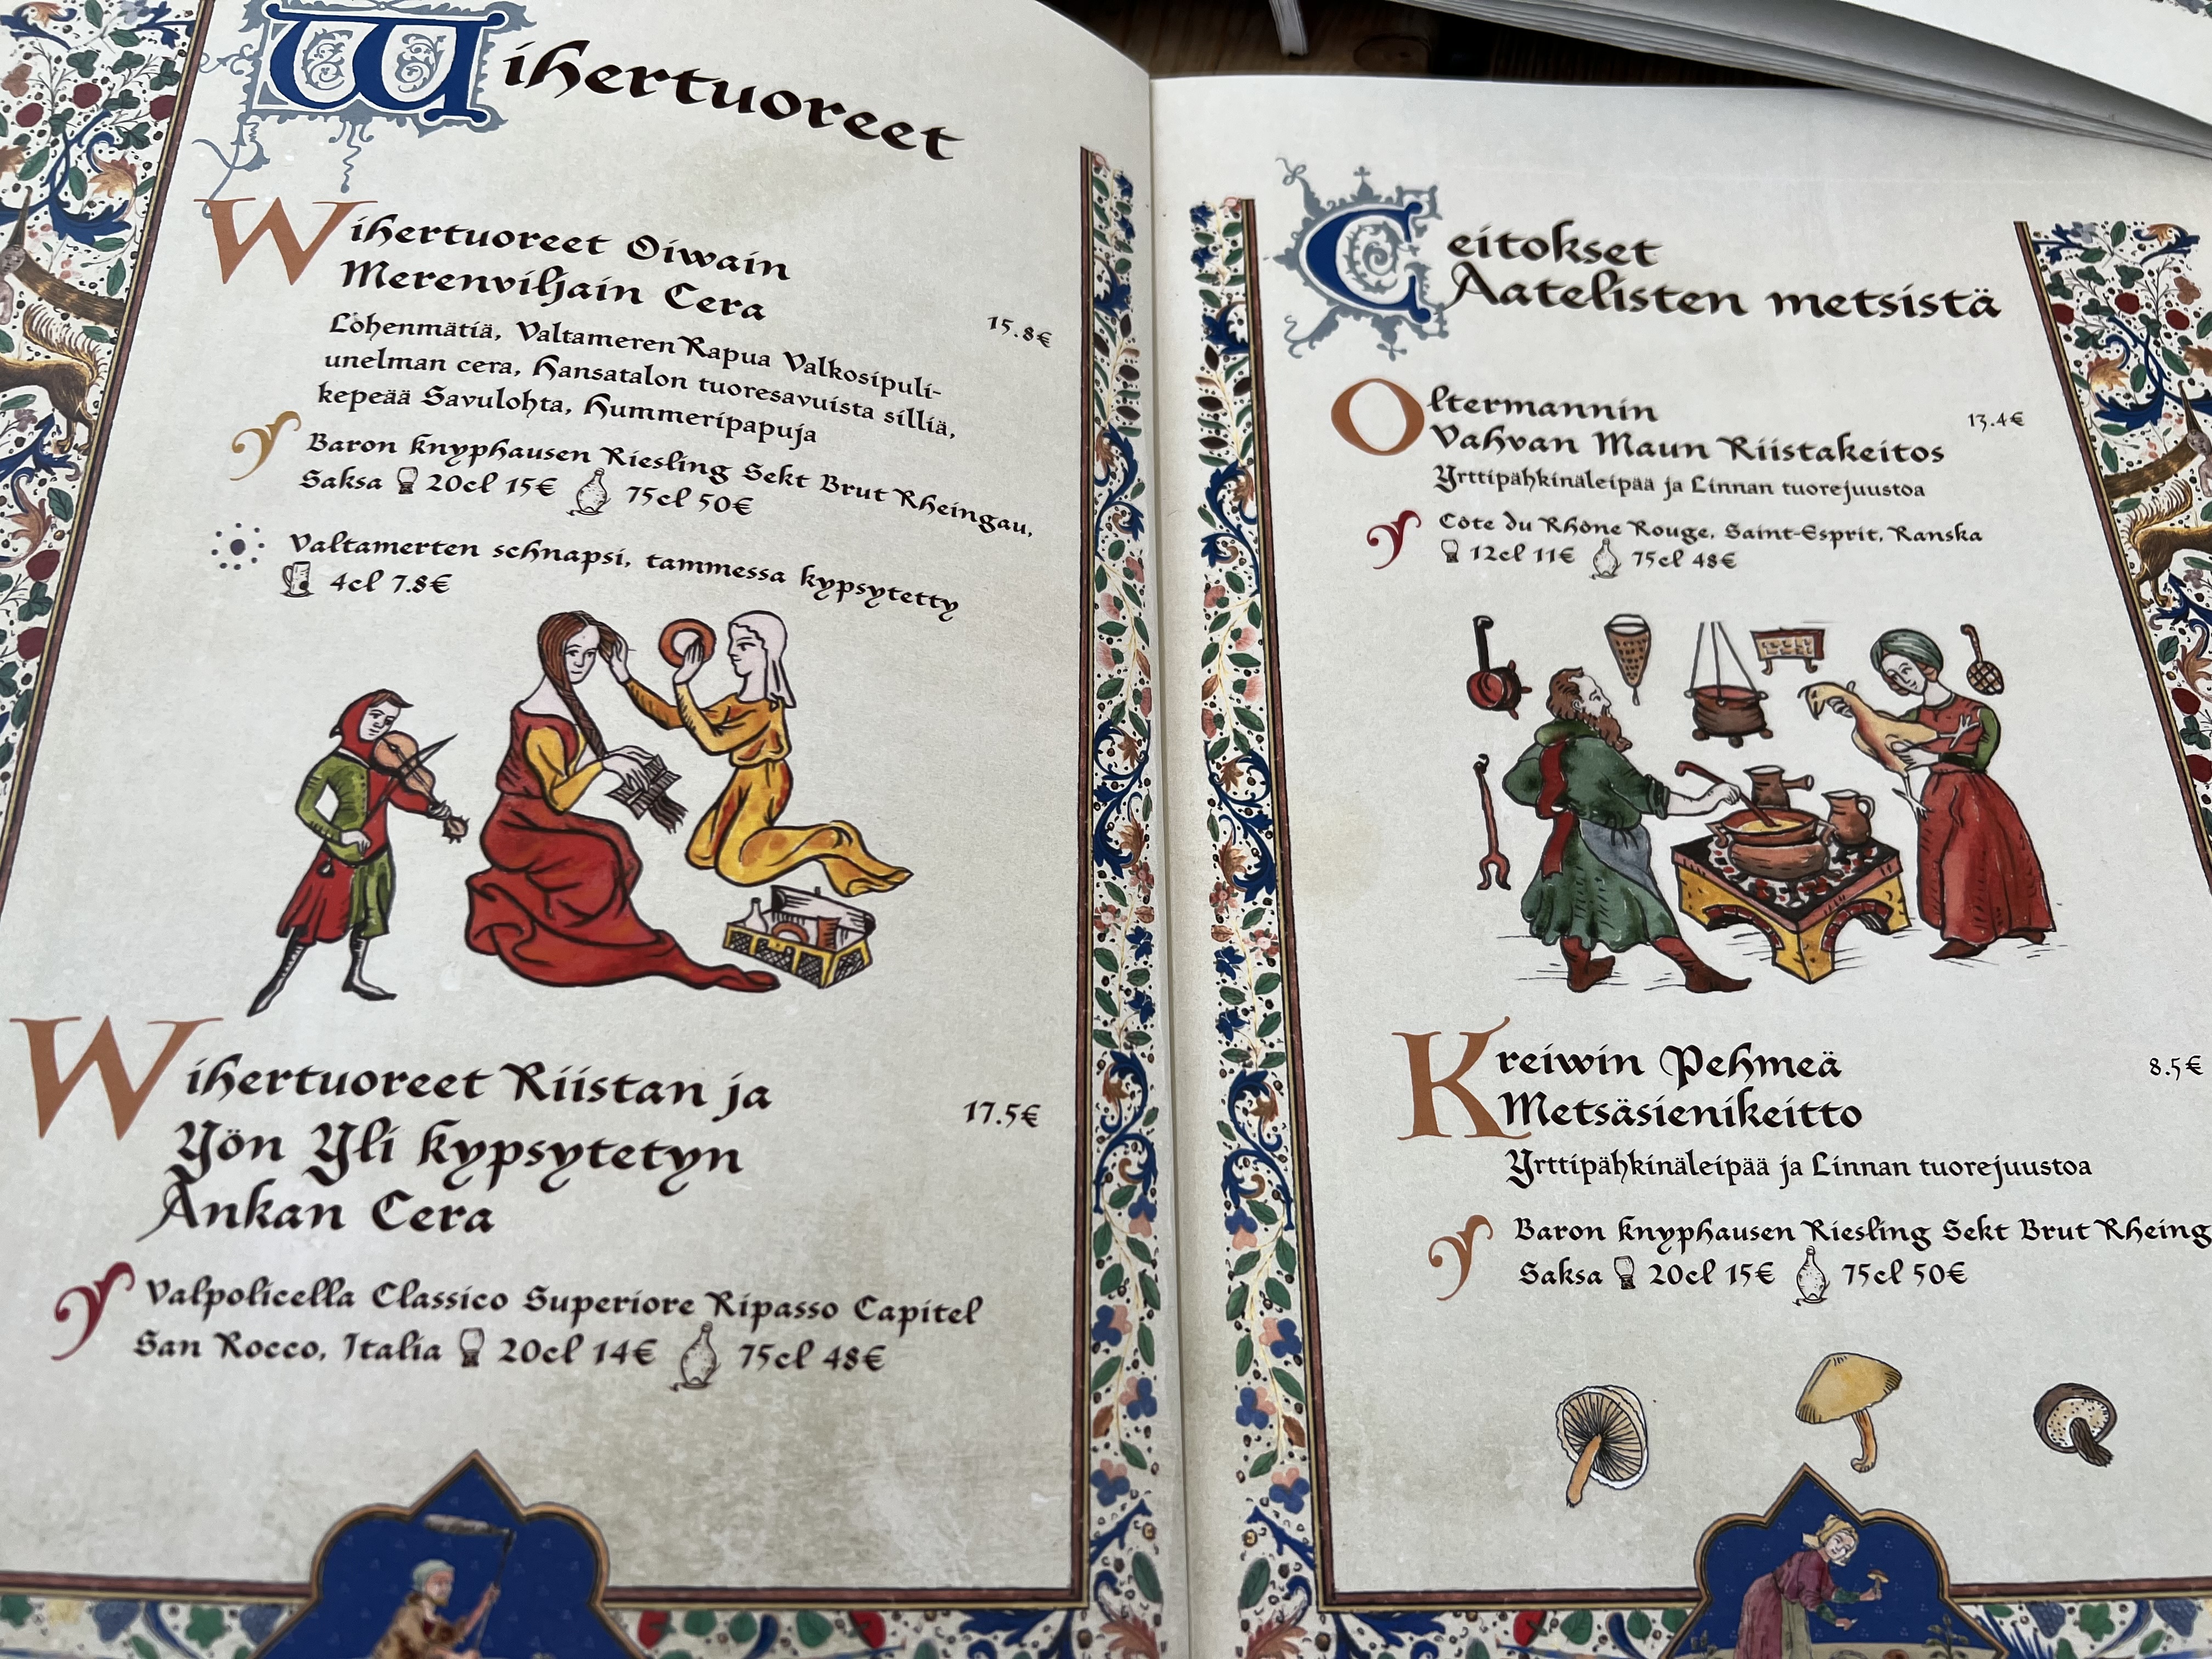 Wihertuoreet
Wihertuoreet Oiwain
Merenviljain Cera
15.8€
Lohenmätiä, Valtameren Rapua Valkosipuli-
unelman cera, Hansatalon tuoresavuista silliä,
kepeää Savulohta, Hummeripapuja
Baron Knyphausen Riesling Sekt Brut Rheingau,
Saksa 20cl 15€ 75cl 50€
Valtamerten schnapsi, tammessa kypsytetty
4cl 7.8€
Wihertuoreet Riistan ja
Yön Yli Kypsytetyn
Ankan Cera
17.5€
Valpolicella Classico Superiore Ripasso Capitel
San Rocco, Italia 20cl 14€ 75cl 48€
Ceitokset
Aatelisten metsistä
Oltermannin
Vahvan Maun Riistakeitos
13.4€
Yrttipähkinäleipää ja Linnan tuorejuustoa
Côte du Rhône Rouge, Saint-Esprit, Ranska
12cl 11€ 75cl 48€
Kreiwin Pehmeä
Metsäsienikeitto
8.5€
Yrttipähkinäleipää ja Linnan tuorejuustoa
Baron Knyphausen Riesling Sekt Brut Rheing
Saksa 20cl 15€ 75cl 50€